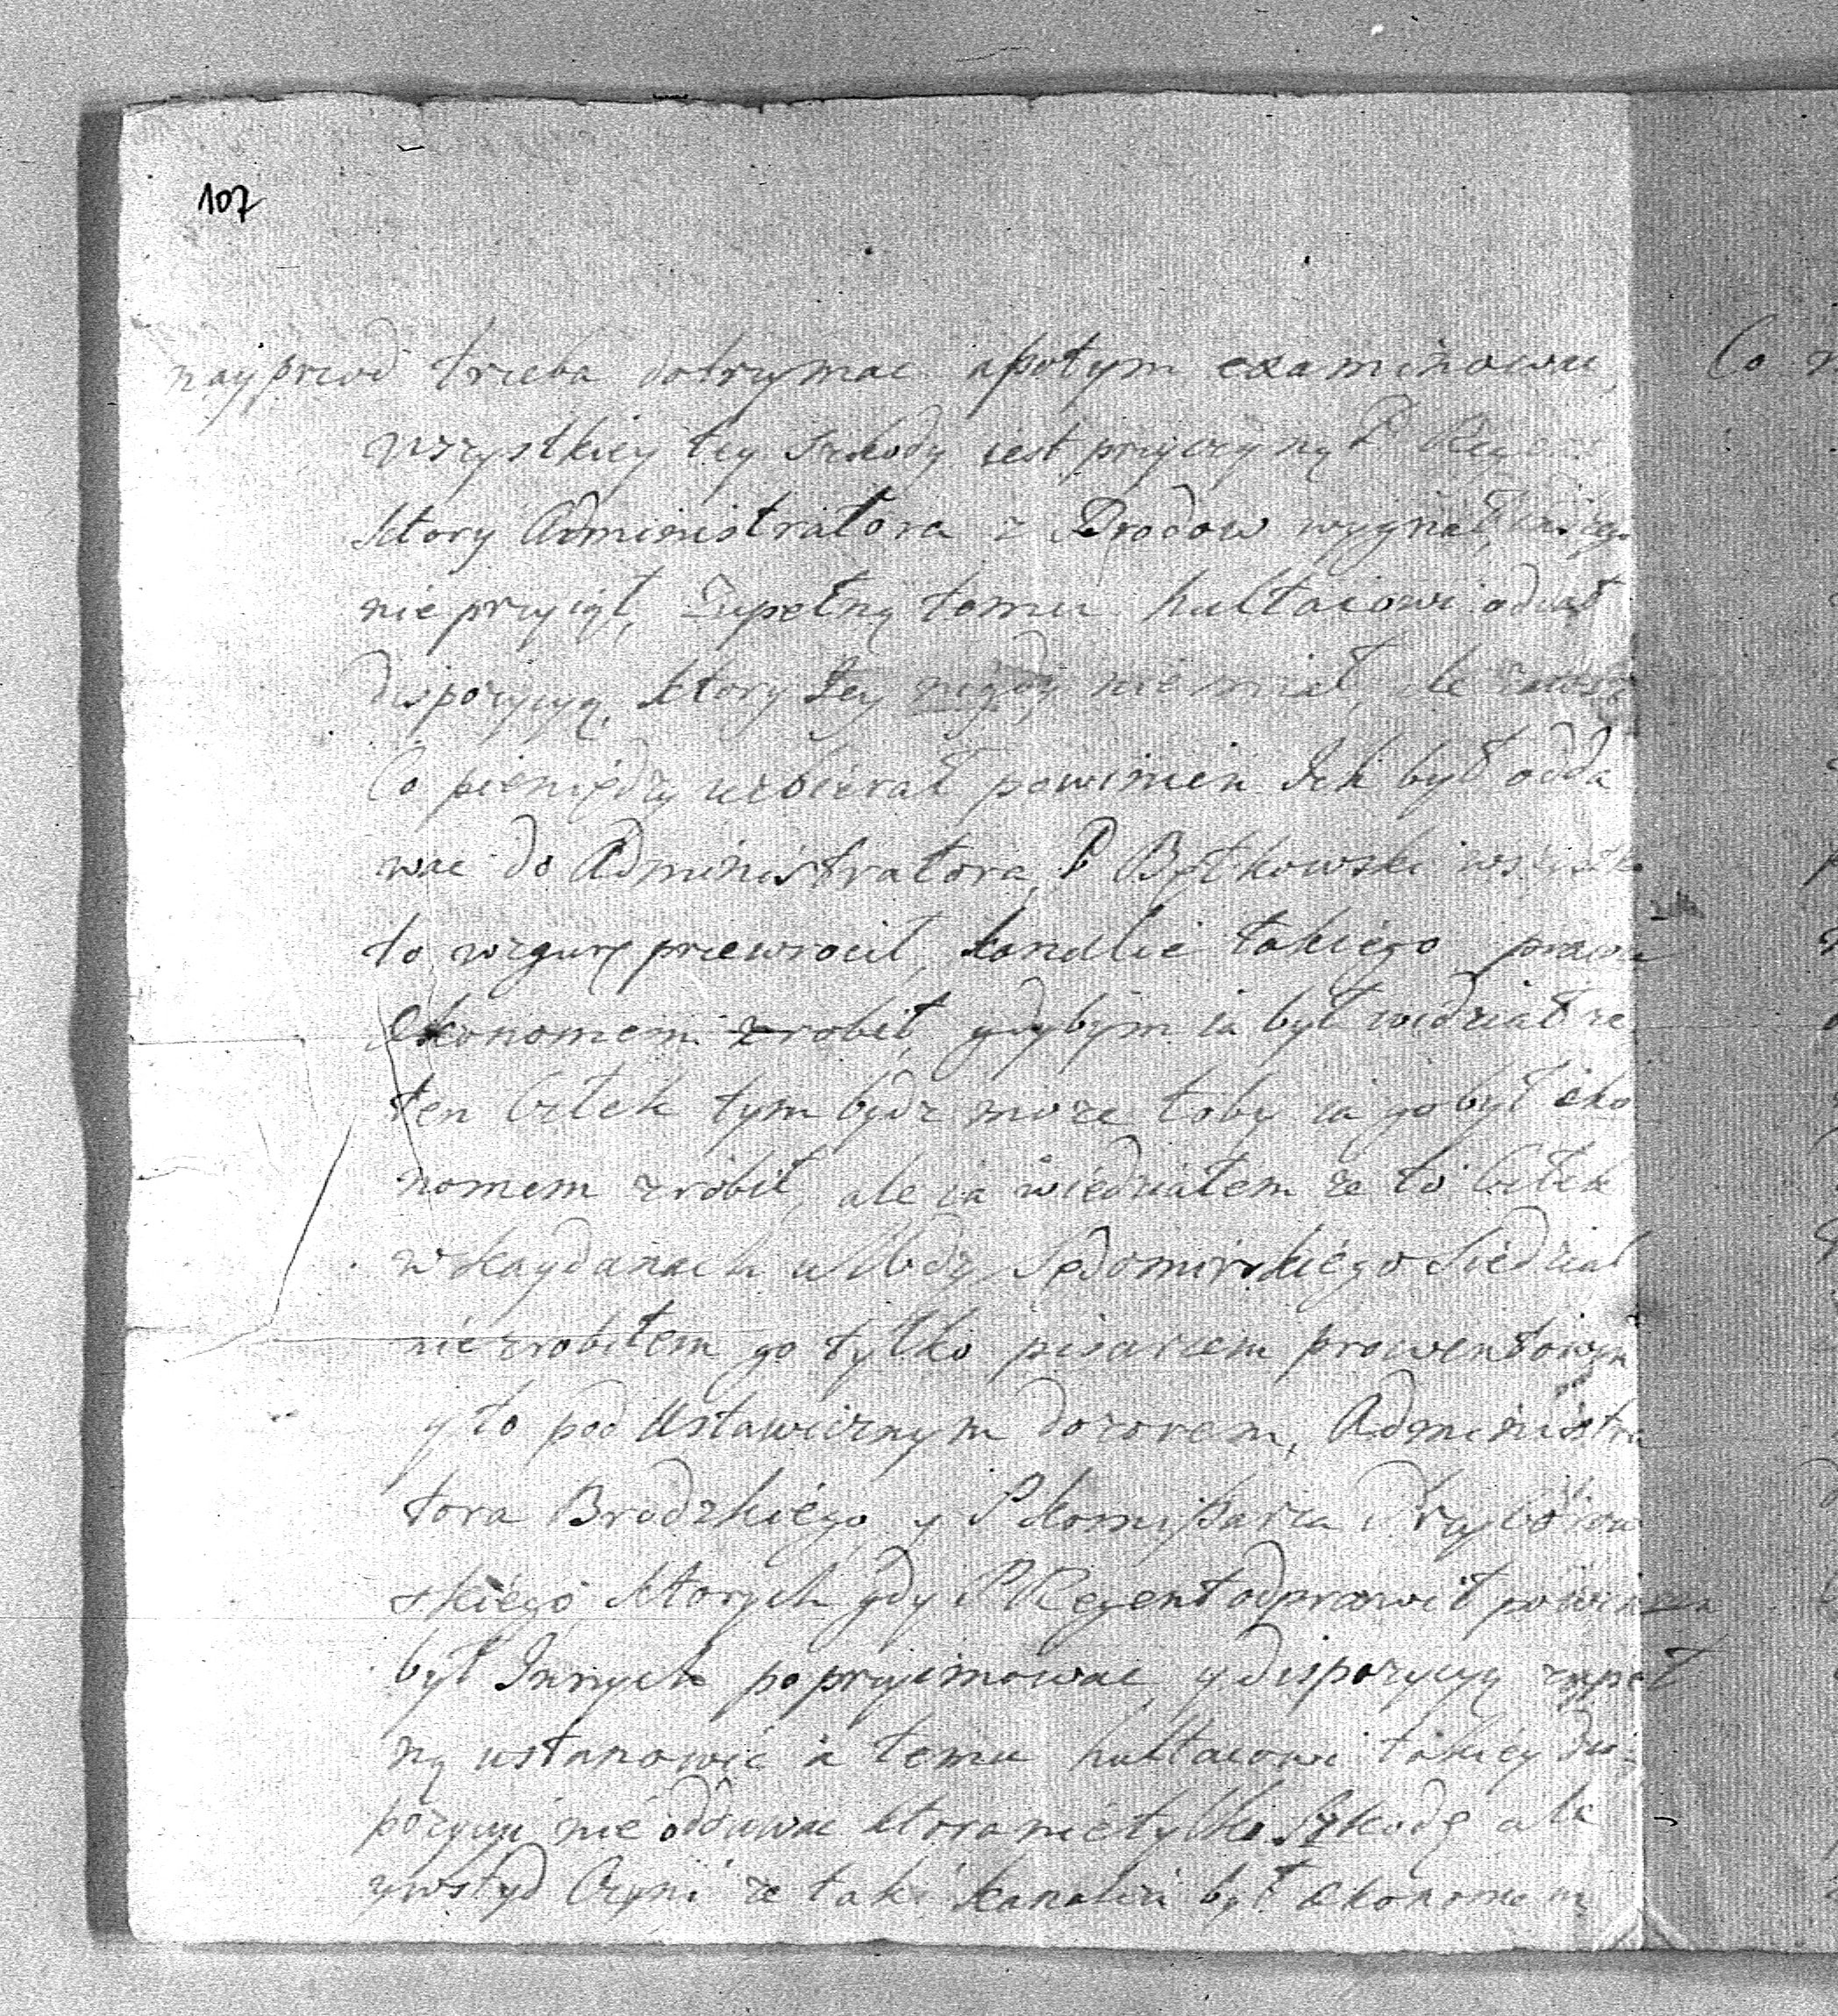 107
nayprwd trzeba dotrzymac apotym examinowac, Co
wszystkiey tey szkody iest przyczyną P
ktory Administratora z Brodow wygnał,
nie przyiął, Zupełną temu hultaiowi oddał
dispozycyą, ktory tey nigdy nie miał, ale zawsze
Co pieniędzy wzbierał powinien Ich był odda
wac do Administratora, P Bytkowski wszystko
to wzgurę przewrocił, kanalie takiego prawie
Ekonomem zrobił, gdybym ia był widział ze
ten Człek tym bydz moze toby ia go był eko
nomem zrobił, ale ia wiedziałem ze to Człek
w kaydanach u Wdy Sędomirskiego Siedział
nie zrobiłem go tylko pisarzem prowentowym
y to pod Ustawicznym dozorem, Administra
tora Brodzkiego, y P komißarza
skiego ktorych gdy P Regent odprawił powinien
był Innych poprzyimowac, y dispozycyą zupeł
ną ustanowić a temu hultaiowi takiey dis
pozycyi nie oddawac ktora nietylko Szkodę ale
y wstyd Czyni ze taki kanalia był ekonomem